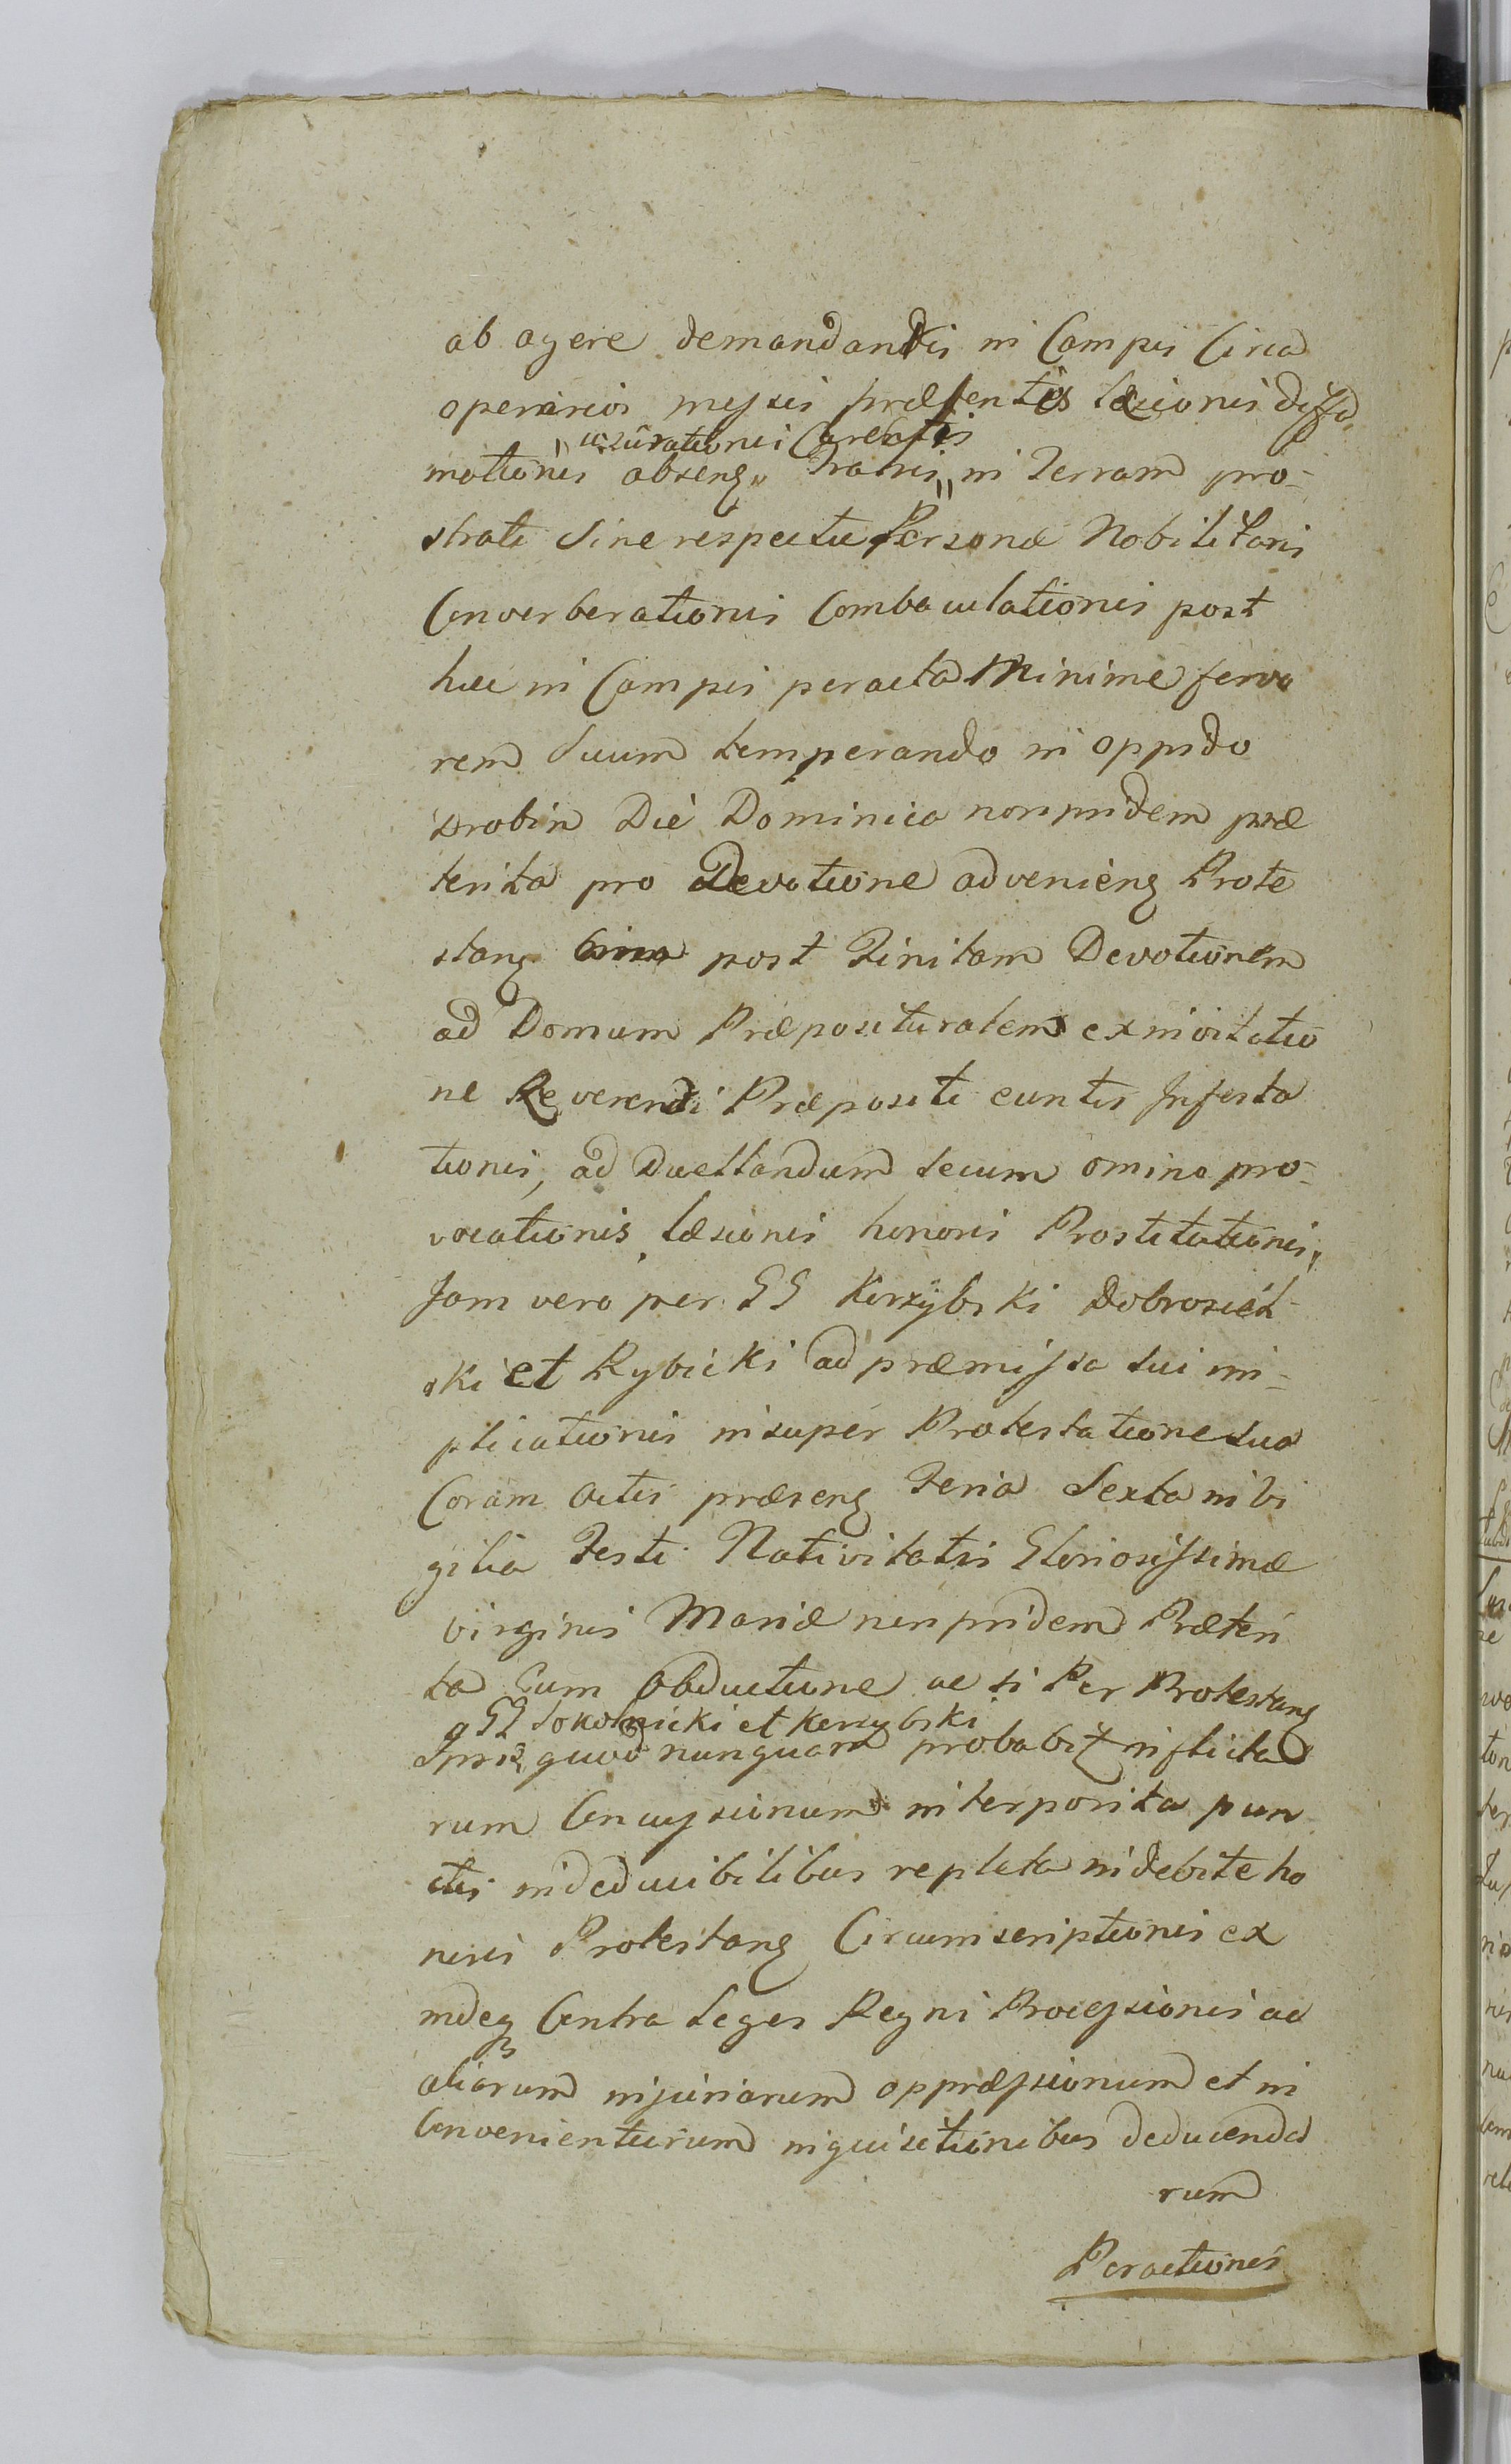 ab agere demandandis in Campis Circa
operarios messis præsentis læsionis diffa
"usurationis Carentis
mationis absens" in Terram pro-
strati Sine respectu Personæ Nobilitaris
Converberationis Combaculationis post
hæc in Campis peracta Minime fervo
rem Suum temperando in oppido
Drobin Die Dominica non pridem præ
terita pro Devotione advenieng Prote
stang post Finitam Devotionem
ad Domum Præposituralem ex invitatio
ne Reverendi Præpositi euntis Infesta
tionis, ad Duellandum secum omino pro-
vocationis, læsionis honoris Prostitutionis,
Jam vero per GG Kerzybski Dobrosiel-
ski et Rybicki ad præmissa sui im-
plicationis insuper Protestatione sua
Coram Actis præseng Feria Sexta in vi
gilia Festi Nativitatis Gloriosissimæ
virginis Mariæ non pridem Præteri
ta Cum Obductione ac si Per Protestang
q GG Sokolnicki et Kerzybski
Ipsis, quod nunquam probabit inflicta
rum Concussionum interposita pun
ctis indeducibilibus repleta indebite ho
noris Protestang Circumscriptionis ex
indeq Contra Leges Regni Processionis ac
aliarum injuriarum oppræssionum et in
Convenientiarum inquisitionibus deducenda
rum
Peractionis